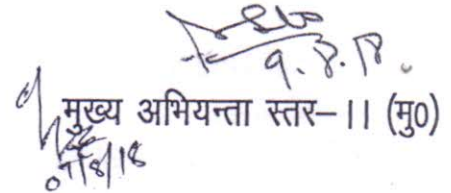 9.8.18.
मुख्य अभियन्ता स्तर–।। (मु0)
09/8/18